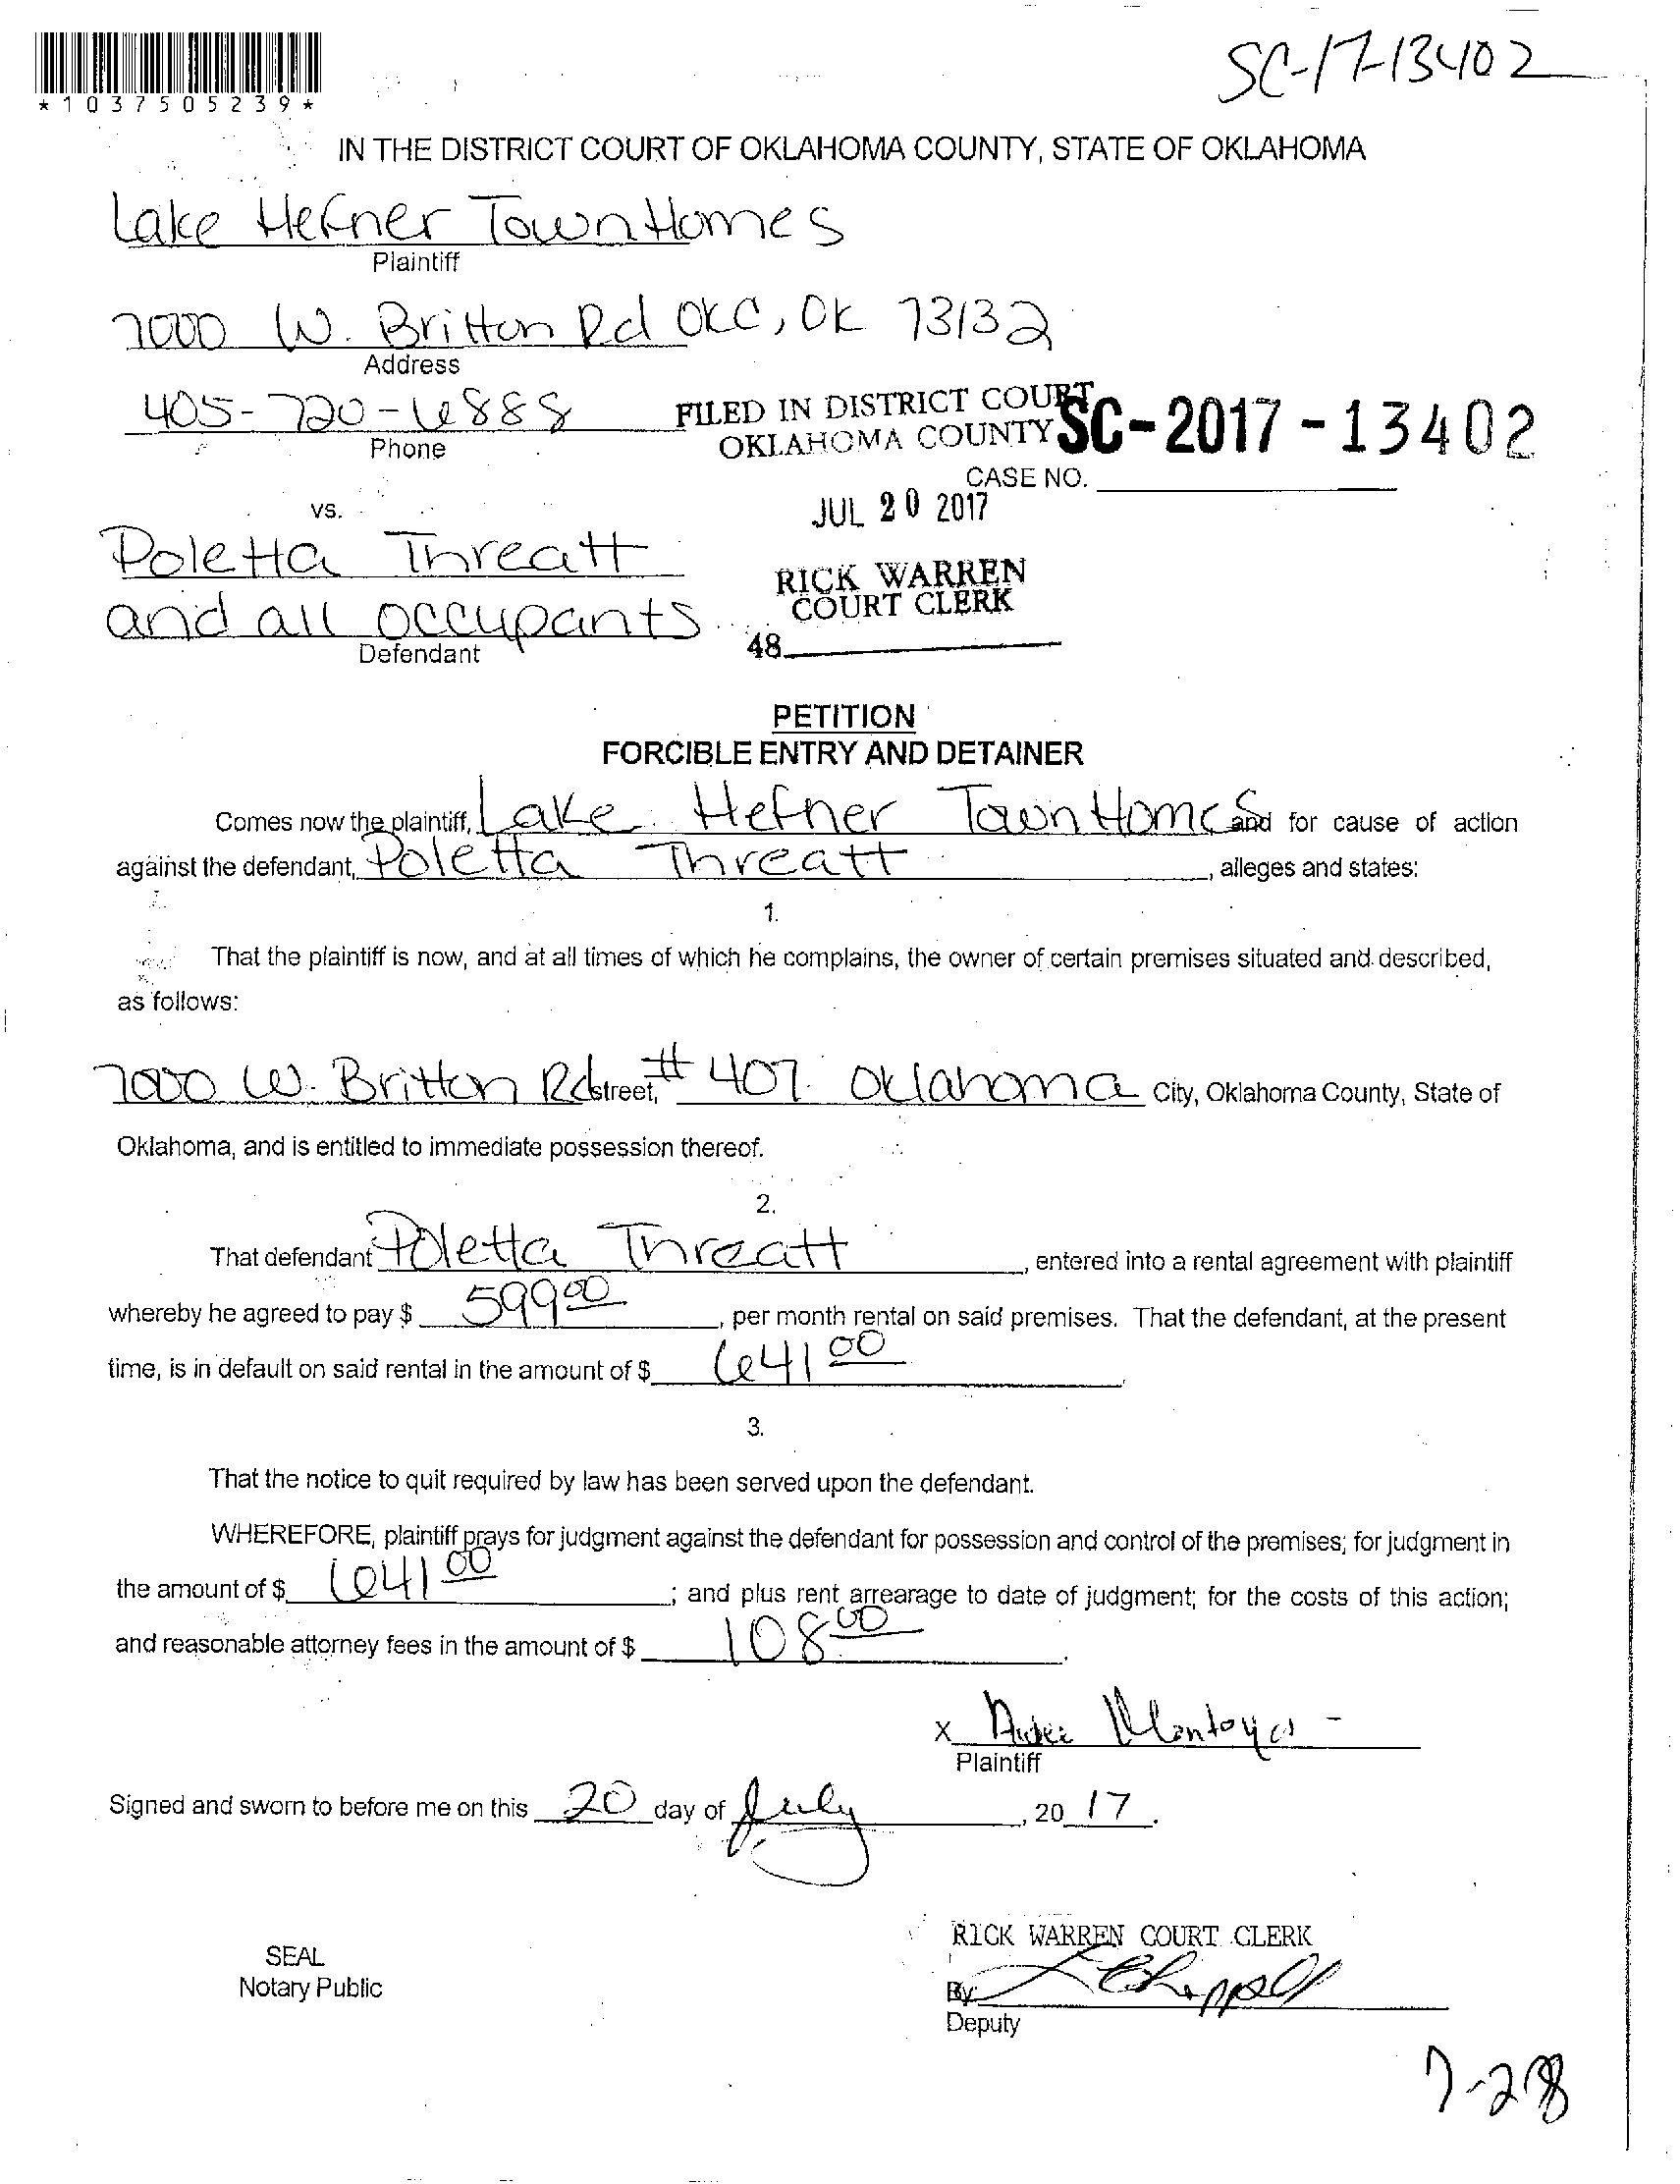 SC-17-13402
*1037505239*
IN THE DISTRICT COURT OF OKLAHOMA COUNTY, STATE OF OKLAHOMA
Lake Hefner TownHomes
Plaintiff
7000 W. Britton Rd OKC, OK 73132
Address
405-720-6888
Phone
FILED IN DISTRICT COURT
OKLAHOMA COUNTY
SC-2017-13402
CASE NO.
JUL 20 2017
vs.
Poletta Threatt
and all occupants
Defendant
RICK WARREN
COURT CLERK
48
PETITION
FORCIBLE ENTRY AND DETAINER
Comes now the plaintiff, Lake Hefner TownHomes and for cause of action
against the defendant, Poletta Threatt, alleges and states:
1.
That the plaintiff is now, and at all times of which he complains, the owner of certain premises situated and described,
as follows:
7000 W. Britton Rd street, # 407 Oklahoma City, Oklahoma County, State of
Oklahoma, and is entitled to immediate possession thereof.
2.
That defendant Poletta Threatt, entered into a rental agreement with plaintiff
whereby he agreed to pay $ 599 00, per month rental on said premises. That the defendant, at the present
time, is in default on said rental in the amount of $ 641 00.
3.
That the notice to quit required by law has been served upon the defendant.
WHEREFORE, plaintiff prays for judgment against the defendant for possession and control of the premises; for judgment in
the amount of $ 641 00; and plus rent arrearage to date of judgment; for the costs of this action;
and reasonable attorney fees in the amount of $ 108 00.
X Montoya
Plaintiff
Signed and sworn to before me on this 20 day of July, 20 17.
SEAL
Notary Public
RICK WARREN COURT CLERK
By: Chappell
Deputy
7-28